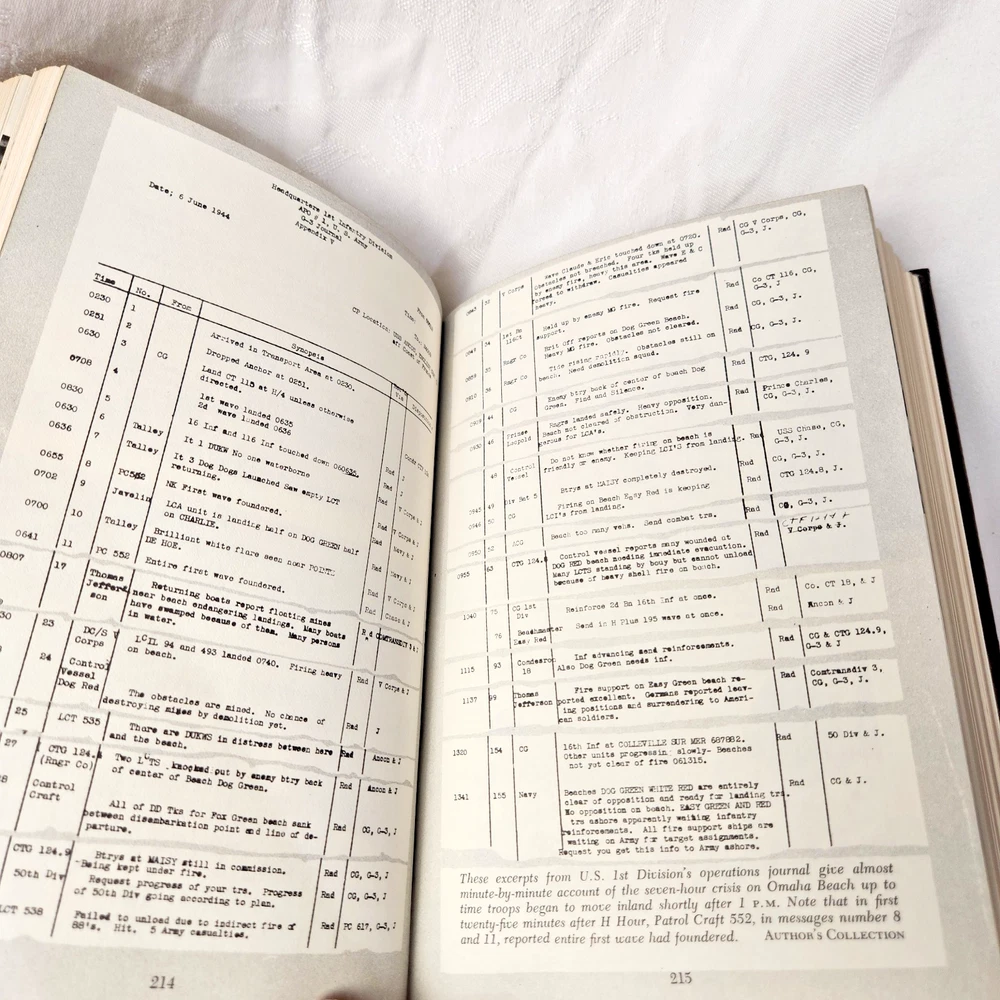 Headquarters 1st Infantry Division
APO # 1, U. S. Army
G-3 Journal
Appendix V
Date; 6 June 1944
CP Location:
Time No. From Synopsis
0230 1 Arrived in Transport Area at 0230.
0251 2 Dropped Anchor at 0251.
0630 3 CG Land CT 115 at H/4 unless otherwise
directed.
0708 4 1st wave landed 0635
2d wave landed 0636
0830 5 16 Inf and 116 Inf touched down 060635.
0630 6 Talley It 1 DUKW No one waterborne Rad J
0636 7 Talley It 3 Dog Dogs Launched Saw empty LCT
returning. Rad V Corps & J
0655 8 PC552 NK First wave foundered. Rad Navy & J
0702 9 Javelin LCA unit is landing half on DOG GREEN half
on CHARLIE.
0700 10 Talley Brilliant white flare seen near POINTE
DE HOE. Rad V Corps & J
0641 11 PC 552 Entire first wave foundered. Rad
0807 17 Thomas
Jefferson
Returning boats report floating mines
near beach endangering landings. Many boats
have swamped because of them. Many persons
in water.
23 DC/S V
Corps
LCIL 94 and 493 landed 0740. Firing heavy
on beach. Rad V Corps & J
24 Control
Vessel
Dog Red
The obstacles are mined. No chance of
destroying mines by demolition yet. Rad J
25 LCT 535 There are DUKWS in distress between here
and the beach. Rad Ancon & J
27 CTG 124.
(Rngr Co)
Two LCTS knocked out by enemy btry back
of center of Beach Dog Green. Rad Ancon & J
Control
Craft
All of DD Tks for Fox Green beach sank
between disembarkation point and line of de-
parture. Rad CG, G-3, J
CTG 124.9 Btrys at MAISY still in commission.
Being kept under fire. Rad CG, G-3, J
50th Div Request progress of your trs. Progress
of 50th Div going according to plan. Rad CG, G-3, J
LCT 538 Failed to unload due to indirect fire of
88's. Hit. 5 Army casualties. Rad PC 617, G-3, J
214
V Corps Wave Claude & Eric touched down at 0720.
Obstacles not breached. Four tks held up
by enemy fire, heavy this area. Wave E & C
forced to withdraw. Casualties appeared
heavy. Rad CG V Corps, CG,
G-3, J.
Held up by enemy MG fire. Request fire
support. Rad Co CT 116, CG,
G-3, J
Rngr Co Brit off reports on Dog Green Beach.
Heavy MG fire. Obstacles not cleared. Rad CG, G-3, J.
Rngr Co Tide rising rapidly. Obstacles still on
beach. Need demolition squad. Rad CG, G-3, J.
CG Enemy btry back of center of beach Dog
Green. Find and Silence. Rad CTG, 124. 9
46 Prince
Leopold
Rngrs landed safely. Heavy opposition.
Beach not cleared of obstruction. Very dan-
gerous for LCA's. Rad Prince Charles,
CG, G-3, J.
48 Control
Vessel
Do not Know whether firing on beach is
friendly or enemy. Keeping LCI's from landing. Rad USS Chase, CG,
G-3, J.
0945 49 Div Bat 5 Btrys at MAISY completely destroyed. Rad CG, G-3, J.
0946 50 CG Firing on Beach Easy Red is keeping
LCI's from landing. Rad CTG 124.8, J.
0950 52 ACG Beach too many vehs. Send combat trs. Rad CG, G-3, J.
0955 63 CTG 124. Control vessel reports many wounded at
DOG RED beach needing immediate evacuation.
Many LCTS standing by buoy but cannot unload
because of heavy shell fire on beach. Rad V Corps & J.
1040 75 CG 1st
Div
Reinforce 2d Bn 16th Inf at once. Rad Co. CT 18, & J
76 Beachmaster
Easy Red
Send in H Plus 195 wave at once. Rad Ancon & J
1115 93 Comdesron
18
Inf advancing send reinforcements.
Also Dog Green needs inf. Rad CG & CTG 124.9,
G-3 & J
1137 99 Thomas
Jefferson
Fire support on Easy Green beach re-
ported excellent. Germans reported leav-
ing positions and surrendering to Ameri-
can soldiers. Rad Comtransdiv 3,
CG, G-3, J.
1320 154 CG 16th Inf at COLLEVILLE SUR MER 687882.
Other units progressin slowly- Beaches
not yet clear of fire 061315. Rad 50 Div & J.
1341 155 Navy Beaches DOG GREEN WHITE RED are entirely
clear of opposition and ready for landing trs.
No opposition on beach. EASY GREEN AND RED
trs ashore apparently waiting infantry
reinforcements. All fire support ships are
waiting on Army for target assignments.
Request you get this info to Army ashore. Rad CG & J.
These excerpts from U.S. 1st Division's operations journal give almost
minute-by-minute account of the seven-hour crisis on Omaha Beach up to
time troops began to move inland shortly after 1 P.M. Note that in first
twenty-five minutes after H Hour, Patrol Craft 552, in messages number 8
and 11, reported entire first wave had foundered. AUTHOR'S COLLECTION
215